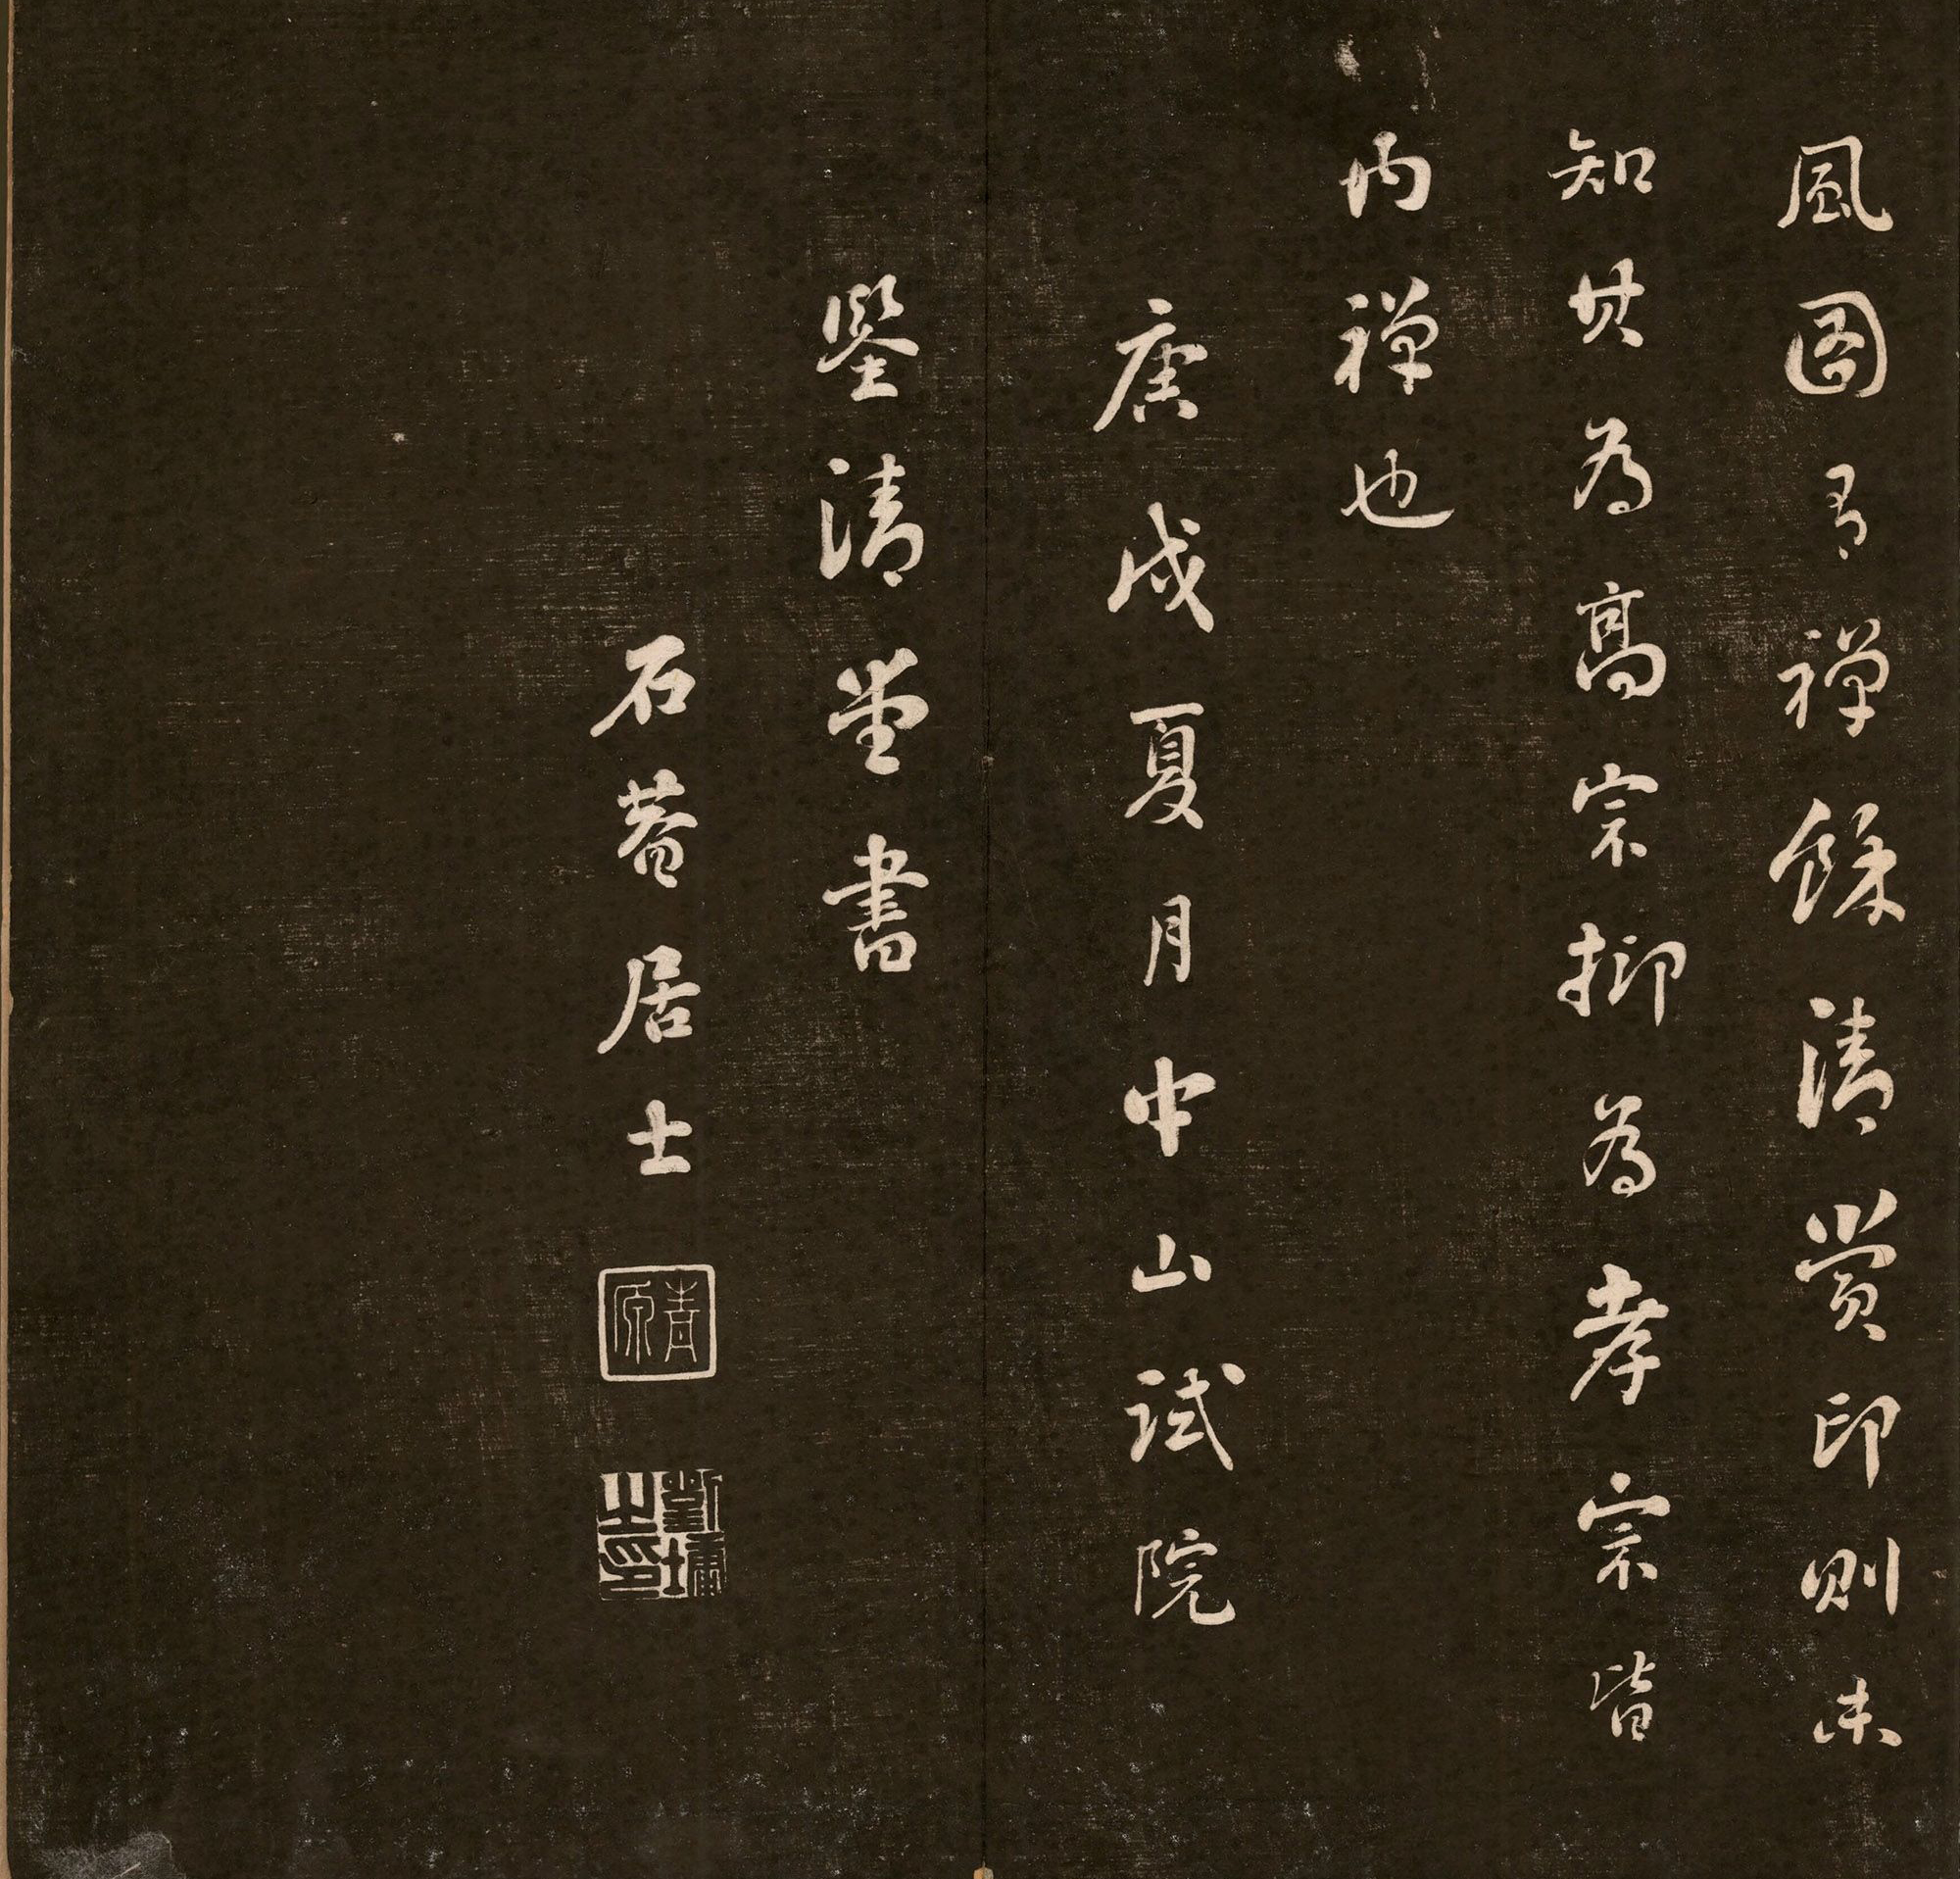 風圖有禪餘清賞印則未
知其為高宗抑為孝宗皆
内禪也
庚戌夏月中山試院
鑒清堂書
石菴居士
青原
劉墉之印